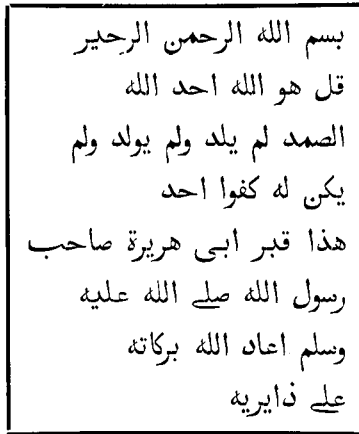 بسم الله الرحمن الرحير
قل هو الله احد الله
الصمد لم يلد ولم يولد ولم
يكن له كفوا احد
هذا قبر ابى هريرة صاحب
رسول الله صلے الله عليه
وسلم اعاد الله بركاته
علے ذايريه